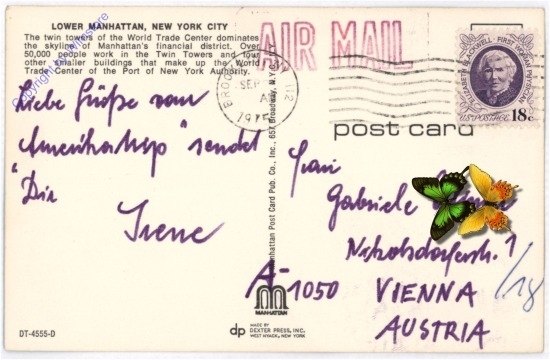 LOWER MANHATTAN, NEW YORK CITY
The twin towers of the World Trade Center dominates
the skyline of Manhattan's financial district. Over
50,000 people work in the Twin Towers and four
other smaller buildings that make up the World
Trade Center of the Port of New York Authority.
AIR MAIL
SEP
ELIZABETH BLACKWELL · FIRST WOMAN PHYSICIAN
US POSTAGE 18c
post card
Liebe Grüße vom
"Amerikatrip" sendet
Dir
Irene
Manhattan Post Card Pub. Co., Inc., 657 Broadway, N.Y.
Frau
Gabriele
Nikolsdorferstr. 1
/18
A-1050 VIENNA
AUSTRIA
MANHATTAN
DT-4555-D
dp MADE BY
DEXTER PRESS, INC.
WEST NYACK, NEW YORK